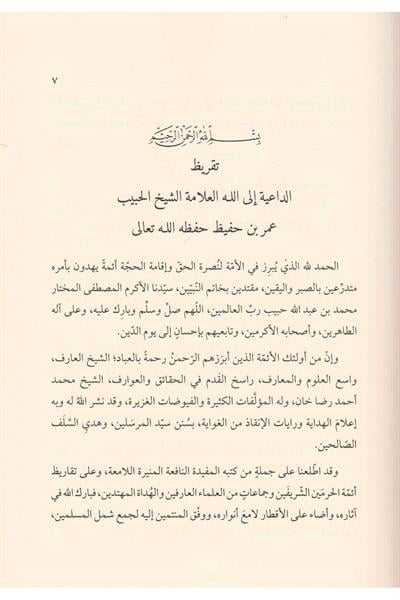 ٧
بِسْمِ اللهِ الرَّحْمٰنِ الرَّحِيْمِ
تقريظ
الداعية إلى اللـه العلامة الشيخ الحبيب
عمر بن حفيظ حفظه اللـه تعالى
الحمد لله الذي يُبرِز في الأمّة لنُصرة الحقّ وإقامة الحجّة أئمةً يهدون بأمره
متدرّعين بالصبر واليقين، مقتدين بخاتم النّبيّين، سيّدنا الأكرم المصطفى المختار
محمد بن عبد الله حبيب ربّ العالمين، اللّهم صلّ وسلّم وبارك عليه، وعلى آله
الطاهرين، وأصحابه الأكرمين، وتابعيهم بإحسانٍ إلى يوم الدّين.
وإنّ من أولئك الأئمّة الذين أبرَزهم الرّحمنُ رحمةً بالعباد؛ الشيخ العارف،
واسع العلوم والمعارف، راسخ القَدم في الحقائق والعوارف، الشيخ محمد
أحمد رضا خان، وله المؤلَّفات الكثيرة والفيوضات الغزيرة، وقد نشر اللهُ له وبه
إعلامَ الهداية ورايات الإنقاذ من الغواية، بسنن سيّد المرسَلين، وهديِ السَّلَف
الصّالحين.
وقد اطّلعنا على جملةٍ من كتبه المفيدة النافعة المنيرة اللامعة، وعلى تقاريظ
أئمّة الحرَمَين الشّريفَين وجماعاتٍ من العلماء العارفين والهُداة المهتدين، فبارك الله في
آثاره، وأضاء على الأقطار لامعَ أنواره، ووفّق المنتمين إليه لجمع شمل المسلمين،